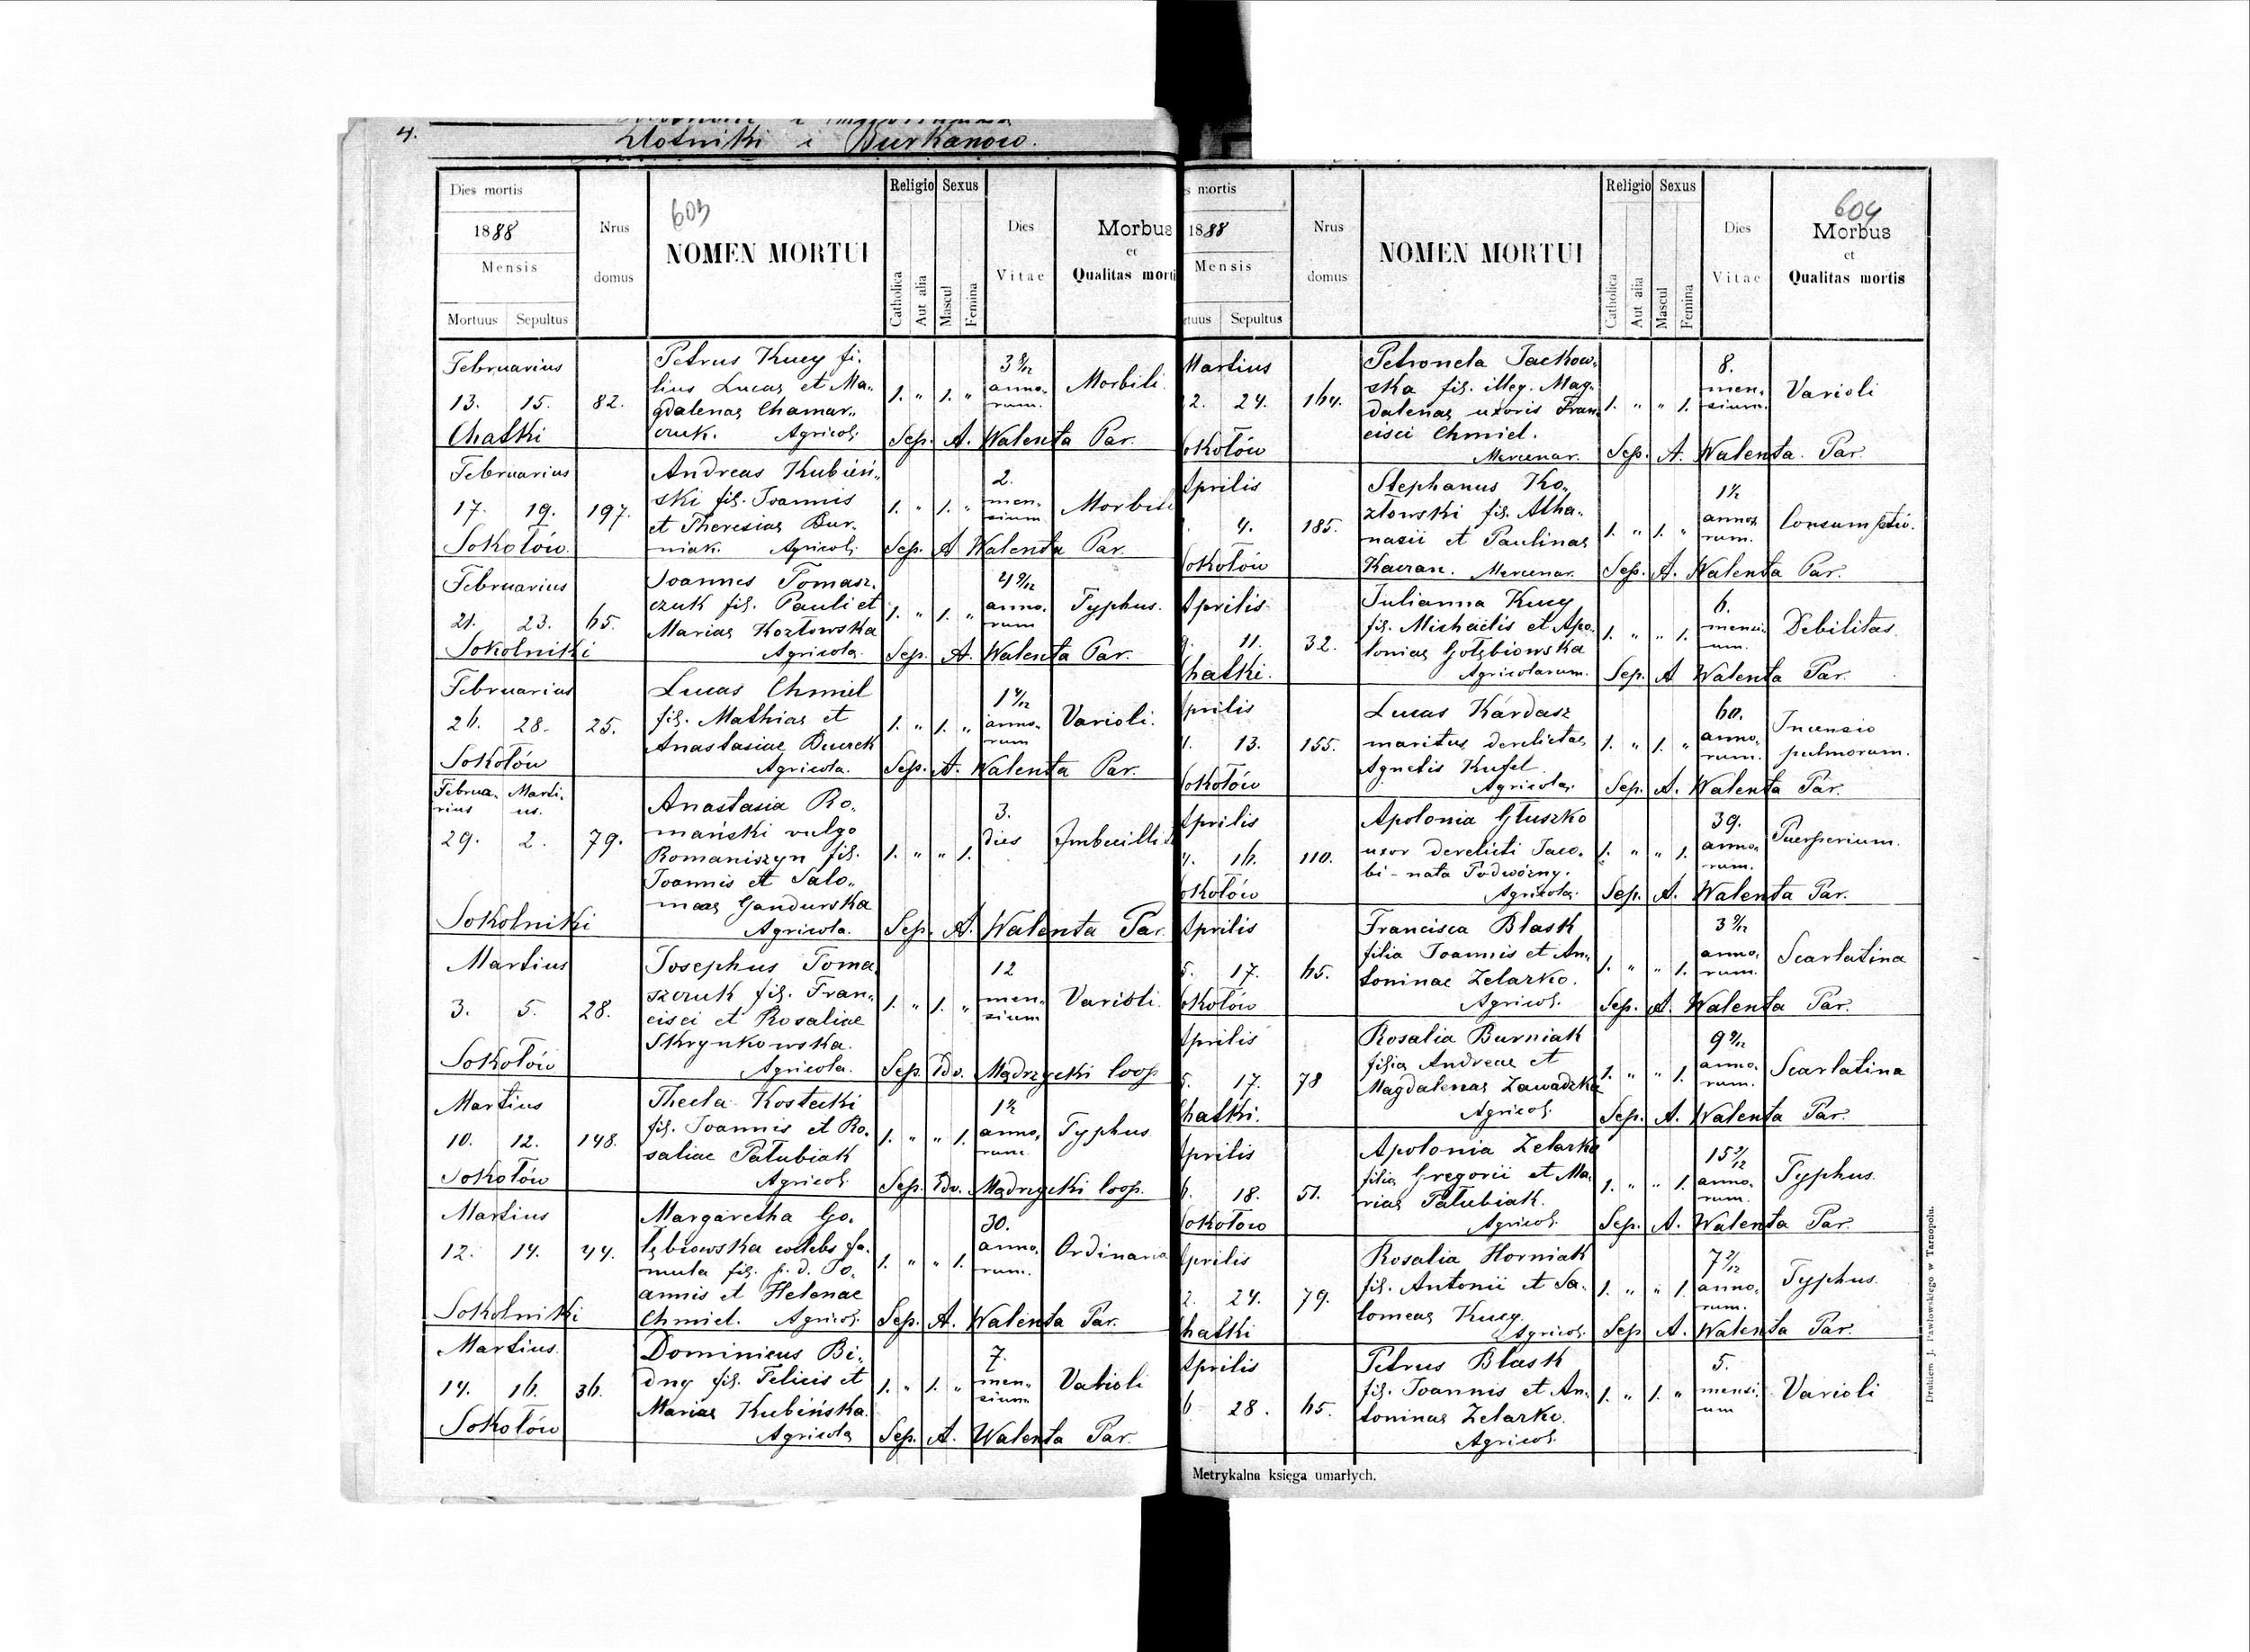 4.
Złotniki i Burkanow.
Dies mortis
1888
Mensis
Mortuus Sepultus
Nrus
domus
603
NOMEN MORTUI
Religio Sexus
Catholica
Aut alia
Mascul
Femina
Dies
Vitae
Morbus
et
Qualitas morti
Februarius
13. 15. 82.
Chatki
Petrus Kucy fi-
lius Lucas et Ma-
gdalenas Chamar-
czuk. Agricol.
1. " 1. "
3 8/12
anno-
rum.
Morbili.
Sep. A. Walenta Par.
Februarius
17. 19. 197.
Sokołów.
Andreas Kubień-
ski fil. Joannis
et Theresias Bur-
niak. Agricol.
1. " 1. "
2.
men-
sium
Morbili
Sep. A Walenta Par.
Februarius
21. 23. 65.
Sokolniki
Joannes Tomasz-
czuk fil. Pauli et
Marias Kozłowska
Agricola.
1. " 1. "
4 9/12
anno-
rum
Typhus.
Sep. A. Walenta Par.
Februarius
26. 28. 25.
Sokołów
Lucas Chmiel
fil. Mathias et
Anastasiae
Agricola.
1. " 1. "
anno-
rum
Varioli.
Sep. A. Walenta Par.
Februa- Marti-
rius us.
29. 2. 79.
Sokolniki
Anastasia Ro-
mański vulgo
Romaniszyn fil.
Joannis et Salo-
meas Gandurska
Agricola.
1. " " 1.
3.
dies
Sep. A. Walenta Par.
Martius
3. 5. 28.
Sokołów
Josephus Toma-
szczuk fil. Fran-
cisci et Rosaliae
Skrynkowska.
Agricola.
1. " 1. "
12
men-
sium
Varioli.
Sep. Edv. Mądrzycki Coop
Martius
10. 12. 148.
Sokołów
Thecla Kostecki
fil. Joannis et Ro-
saliae Pałubiak
Agricol.
1. " " 1.
1 1/2
anno-
rum
Typhus
Sep. Edv. Mądrzycki Coop.
Martius
12. 14. 44.
Sokolniki
Margaretha Go-
łębiowska coelebs fa-
mula fil. p. d. Jo-
annis et Helenae
Chmiel. Agricol.
1. " " 1.
30.
anno-
rum.
Ordinaria
Sep. A. Walenta Par.
Martius.
14. 16. 36.
Sokołów
Dominicus Bi-
dny fil. Felicis et
Marias Kubińska.
Agricola
1. " 1. "
7.
men-
sium
Varioli
Sep. A. Walenta Par.
s mortis
1888
Mensis
tuus Sepultus
Nrus
domus
NOMEN MORTUI
Religio Sexus
Catholica
Aut alia
Mascul
Femina
Dies
Vitae
604
Morbus
et
Qualitas mortis
Martius
2. 24. 164.
okołów
Petronela Jackow-
ska fil. illeg. Mag-
dalenas uxoris Fran-
cisci Chmiel.
Mercenar.
1. " " 1.
8.
men-
sium.
Varioli
Sep. A. Walenta. Par.
Aprilis
4. 185.
okołów
Stephanus Ko-
złowski fil. Atha-
nasii et Paulinas
Kaczan. Mercenar.
1. " 1. "
1 1/2
anno-
rum.
Consumptio.
Sep. A. Walenta Par.
Aprilis
9. 11. 32.
hatki.
Julianna Kucy
fil. Michaelis et Apo-
lonias Gołębiowska
Agricolarum.
1. " " 1.
6.
mensi-
um.
Debilitas.
Sep. A Walenta Par.
prilis
1. 13. 155.
okołów
Lucas Kárdasz
maritus derelictas
Agnetis Kufel
Agricolas.
1. " 1. "
60.
anno-
rum.
Incensio
pulmorum.
Sep. A. Walenta Par.
Aprilis
4. 16. 110.
okołów
Apolonia Głuszko
uxor derelicti Jaco-
bi - nata Podwórny.
Agricolas.
1. " " 1.
39.
anno-
rum.
Puerperium.
Sep. A. Walenta Par.
Aprilis
5. 17. 65.
okołów
Francisca Błask
filia Joannis et An-
toninae Zelazko.
Agricol.
1. " " 1.
3 9/12
anno-
rum.
Scarlatina
Sep. A. Walenta Par.
Aprilis
5. 17. 78
hatki.
Rosalia Burniak
filia Andreae et
Magdalenas Zawadzka
Agricol.
1. " " 1.
9 9/12
anno-
rum.
Scarlatina
Sep. A. Walenta Par.
prilis
6. 18. 51.
okołow
Apolonia Zelazko
filia Gregorii et Ma-
rias Pałubiak.
Agricol.
1. " " 1.
15 2/12
anno-
rum.
Typhus.
Sep. A. Walenta Par.
prilis
2. 24. 79.
hatki
Rosalia Horniak
fil. Antonii et Sa-
lomeas Kucy.
Agricol.
1. " " 1.
7 2/12
anno-
rum.
Typhus.
Sep A. Walenta Par.
Aprilis
6 28. 65.
Petrus Błask
fil. Joannis et An-
toninas Zelazko.
Agricol.
1. " 1. "
5.
mensi-
um
Varioli
Metrykalna księga umarłych.
Drukiem J. Pawłowskiego w Tarnopolu.